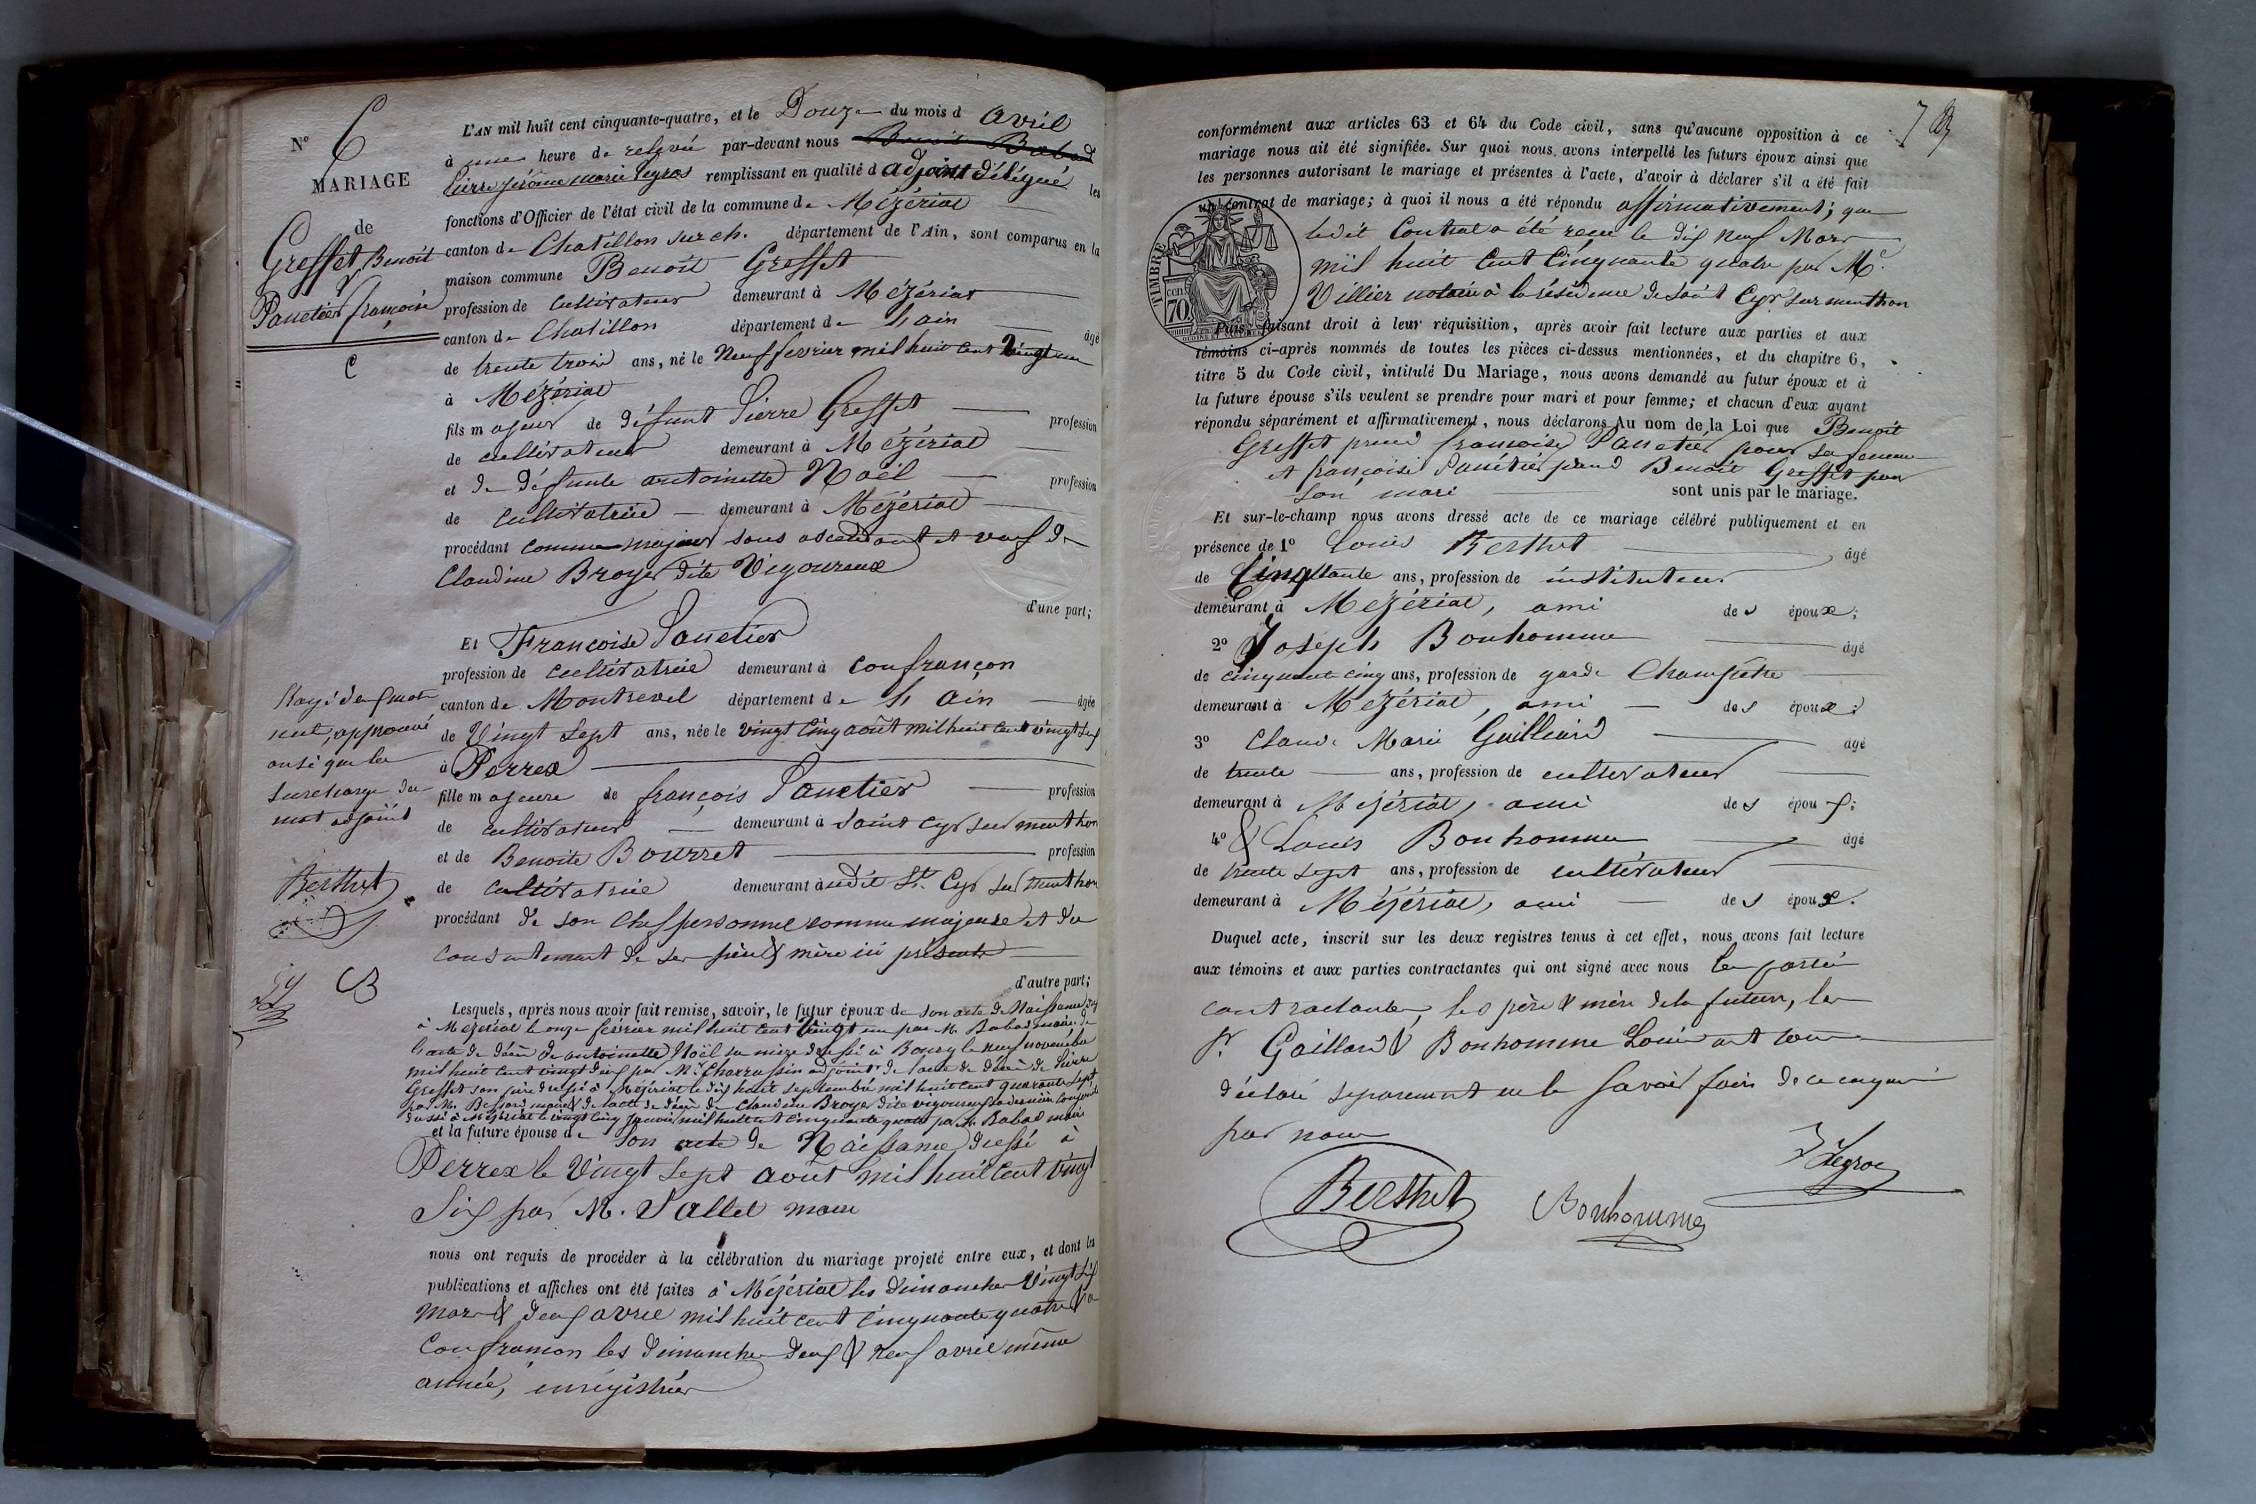 N° 6
MARIAGE
de
Greffet Benoit
&
Panetier françoise
L'AN mil huit cent cinquante-quatre, et le Douze du mois d avril
à une heure de relevée par-devant nous Benoit Babad
Pierre jérôme marie Legros remplissant en qualité d adjoint délégué les
fonctions d'Officier de l'état civil de la commune de Mézériat
canton de Chatillon sur ch. département de l'Ain, sont comparus en la
maison commune Benoit Greffet
profession de cultivateur demeurant à Mézériat
canton de Chatillon département de L'ain âgé
de trente trois ans, né le neuf fevrier mil huit cent vingt un
à Mézériat
fils majeur de défunt Pierre Greffet profession
de cultivateur demeurant à Mézériat
et de défunte antoinette Noël profession
de cultivatrice demeurant à Mézériat
procédant comme majeur sans ascendant et veuf de
Claudine Broyer dite Vigoureux
d'une part;
Et Françoise Panetier
profession de cultivatrice demeurant à confrançon
canton de Montrevel département de L'ain âgée
de Vingt sept ans, née le vingt cinq août mil huit cent vingt six
à Perrex
fille majeure de françois Panetier profession
de cultivateur demeurant à saint Cyr sur menthon
et de Benoite Bourret profession
de cultivatrice demeurant à udit St Cyr sur menthon
procédant de son chef personnel comme majeure et du
consentement de ses père & mère ici présents
d'autre part;
Rayé de quatre
nul, approuvé
ainsi que la
surcharge du
mot adjoint
Berthet
Lesquels, après nous avoir fait remise, savoir, le futur époux de son acte de Naissance
à Mézériat le onze février mil huit cent vingt un par M. Babad maire de
l'acte de décès de antoinette Noël sa mère dressé à Bourg le neuf novembre
mil huit cent vingt deux par Mr. Charrassin adjoint de l'acte de décès de Pierre
Greffet son père dressé à Mézériat le dix huit septembre mil huit cent quarante sept
par M. Bessard maire & de l'acte de décès de Claudine Broyer dite vigoureux sa dernière conjointe
dressé à Mézériat le vingt cinq janvier mil huit cent cinquante quatre par M. Babad maire
et la future épouse de son acte de Naissance dressé à
Perrex le Vingt sept août mil huit cent vingt
Six par M. Pallet maire
nous ont requis de procéder à la célébration du mariage projeté entre eux, et dont les
publications et affiches ont été faites à Mézériat les dimanches Vingt six
mars & deux avril mil huit cent cinquante quatre & à
Confrançon les dimanches deux & neuf avril même
année, enrégistrées
conformément aux articles 63 et 64 du Code civil, sans qu'aucune opposition à ce
mariage nous ait été signifiée. Sur quoi nous avons interpellé les futurs époux ainsi que
les personnes autorisant le mariage et présentes à l'acte, d'avoir à déclarer s'il a été fait
un contrat de mariage; à quoi il nous a été répondu affirmativement; que
ledit Contrat a été recu le dix neuf Mars
mil huit Cent Cinquante quatre par Me.
Villier notaire à la résidence de saint Cyr sur menthon
TIMBRE
cen 70.
Puis, faisant droit à leur réquisition, après avoir fait lecture aux parties et aux
témoins ci-après nommés de toutes les pièces ci-dessus mentionnées, et du chapitre 6,
titre 5 du Code civil, intitulé Du Mariage, nous avons demandé au futur époux et à
la future épouse s'ils veulent se prendre pour mari et pour femme; et chacun d'eux ayant
répondu séparément et affirmativement, nous déclarons Au nom de la Loi que Benoit
Greffet prend françoise Panetier pour sa femme
et françoise Panetier prend Benoit Greffet pour
son mari sont unis par le mariage.
Et sur-le-champ nous avons dressé acte de ce mariage célébré publiquement et en
présence de 1° Louis Berthet âgé
de Cinquante ans, profession de instituteur
demeurant à Mézériat, ami des époux;
2° Joseph Bonhomme âgé
de cinquante cinq ans, profession de garde Champêtre
demeurant à Mézériat, ami des époux;
3° Claude Marie Guillard âgé
de trente ans, profession de cultivateur
demeurant à Mézériat, ami des époux;
4° & Louis Bonhomme âgé
de trente sept ans, profession de cultivateur
demeurant à Mézériat, ami des époux.
Duquel acte, inscrit sur les deux registres tenus à cet effet, nous avons fait lecture
aux témoins et aux parties contractantes qui ont signé avec nous les parties
contractantes, les père & mère de la future, les
Sr. Gaillard & Bonhomme Louis ont tous
déclaré séparement ne le savoir faire de ce enquis
par nous
Berthet
Bonhomme
Legros